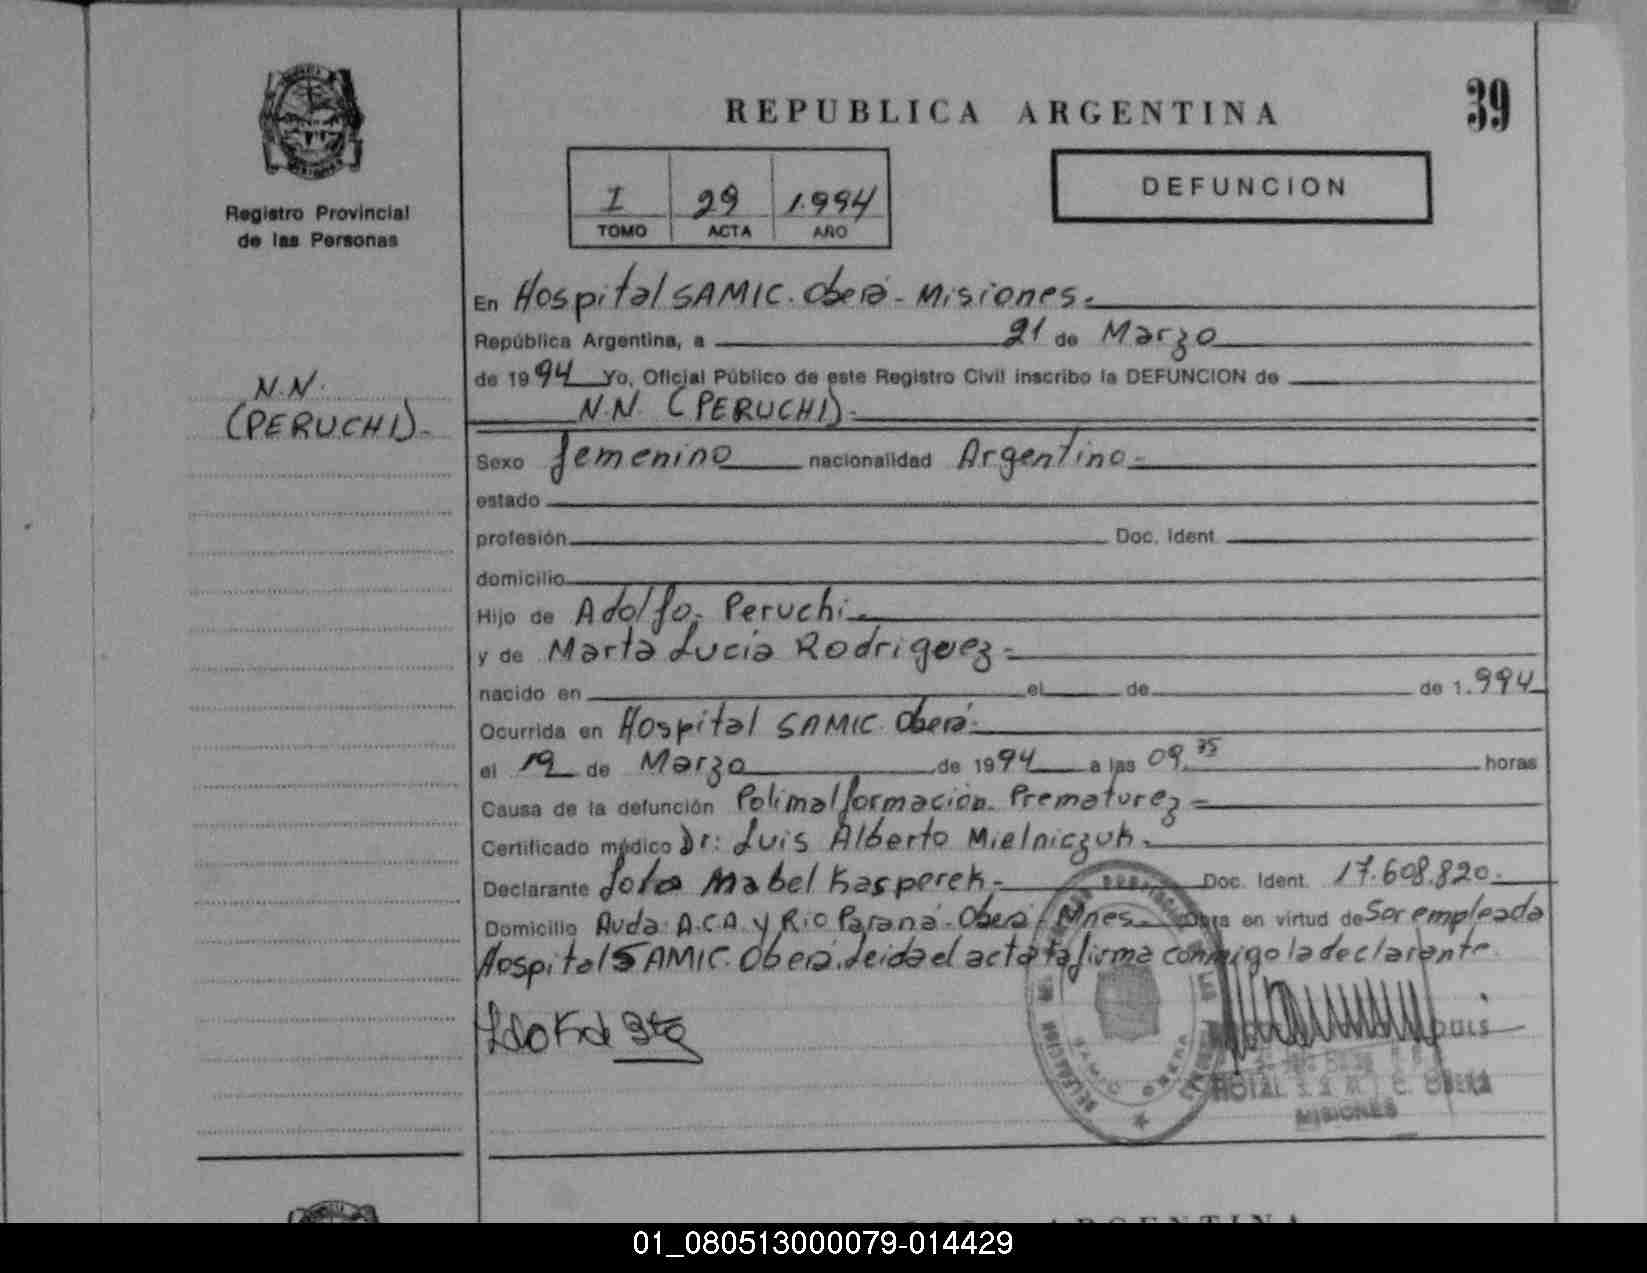 REPUBLICA ARGENTINA
39
Registro Provincial
de las Personas
I 29 1.994
TOMO ACTA AÑO
DEFUNCION
En Hospital SAMIC. Oberá - Misiones.
República Argentina, a 21 de Marzo
de 1994 Yo, Oficial Público de este Registro Civil inscribo la DEFUNCION de
N.N.
(PERUCHI).-
N.N. (PERUCHI).-
Sexo femenino nacionalidad Argentino.-
estado
profesión Doc. Ident.
domicilio
Hijo de Adolfo Peruchi.
y de Marta Lucía Rodriguez.-
nacido en el de de 1.994
Ocurrida en Hospital SAMIC Oberá.-
el 19 de Marzo de 1994 a las 09. horas
Causa de la defunción Polimalformación. Prematurez.-
Certificado médico Dr: Luis Alberto Mielniczuk.
Declarante Mabel Kasperek.- Doc. Ident. 17.608.820.-
Domicilio Avda. A.C.A. y Rio Paraná - Oberá - Mnes. Obra en virtud de Ser empleada
Hospital SAMIC. Oberá. Leida el acta la firma conmigo la declarante.
DELEGACION
SAMIC OBERA
MISIONES
REPUBLICA ARGENTINA
01_080513000079-014429